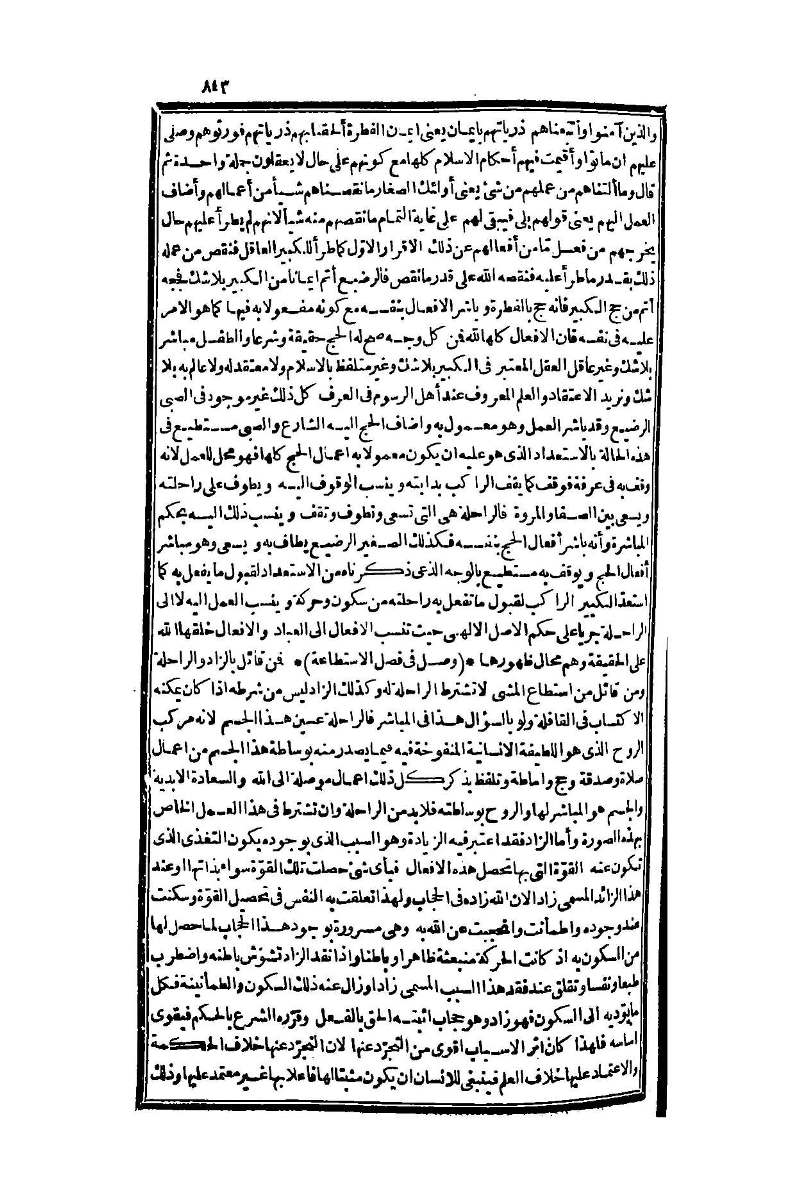 ٨٤٣
والذين آمنوا وأتبعناهم ذرياتهم بايمان يعنى ايمان الفطرة ألحقنا بهم ذرياتهم فورثوهم وصلى
عليهم ان ماتوا وأقيمت فيهم أحكام الاسلام كلها مع كونهم على حال لا يعقلون جملة واحدة ثم
قال وما ألتناهم من عملهم من شئ يعنى أولئك الصغار ما نقصناهم شيأ من أعمالهم وأضاف
العمل اليهم يعنى قولهم بلى فيبقى لهم على غاية التمام ما نقصهم منه شيأ لانهم لم يطرأ عليهم حال
يخرجهم من فعل مّا من أفعالهم عن ذلك الاقرار الاوّل كما طرأ للكبير العاقل فنقص من عمله
ذلك بقدر ما طرأ عليه فنقصه الله على قدر ما نقص فالرضيع أتم ايمانا من الكبير بلا شك فحجه
أتم من حج الكبير فانه حج بالفطرة وباشر الافعال بنفسه مع كونه مفعولا به فيها كما هو الامر
عليه فى نفسه فان الافعال كلها لله فمن كل وجه صح له الحج حقيقة وشرعا والطفل مباشر
بلا شك وغير عاقل العقل المعتبر فى الكبير بلا شك وغير متلفظ بالاسلام ولا معتقد له ولا عالم به بلا
شك ونريد الاعتقاد والعلم المعروف عند أهل الرسوم فى العرف كل ذلك غير موجود فى الصبى
الرضيع وقد باشر العمل وهو معمول به واضاف الحج اليه الشارع والصبى مستطيع فى
هذه الحالة بالاستعداد الذى هو عليه ان يكون معمولا به اعمال الحج كلها فهو محل للعمل لانه
وقف به فى عرفة فوقف كما يقف الراكب بدابته وينسب الوقوف اليه ويطوف على راحلته
ويسعى بين الصفا والمروة فالراحلة هى التى تسعى وتطوف وتقف وينسب ذلك اليه بحكم
المباشرة وأنه باشر أفعال الحج بنفسه فكذلك الصغير الرضيع يطاف به ويسعى وهو مباشر
أفعال الحج ويوقف به مستطيع بالوجه الذى ذكرناه من الاستعداد لقبول ما يفعل به كما
استعدّ الكبير الراكب لقبول ما تفعل به راحلته من سكون وحركة وينسب العمل اليه لا الى
الراحلة جريا على حكم الاصل الالهى حيث تنسب الافعال الى العباد والافعال خلقها الله
على الحقيقة وهم محال ظهورها * (وصل فى فصل الاستطاعة) * فمن قائل بالزاد والراحلة
ومن قائل من استطاع المشى لا تشترط الراحلة له وكذلك الزاد ليس من شرطه اذا كان يمكنه
الاكتساب فى القافلة ولو بالسؤال هذا فى المباشر فالراحلة عين هذا الجسم لانه مركب
الروح الذى هو اللطيفة الانسانية المنفوخة فيه فيما يصدر منه بوساطة هذا الجسم من اعمال
صلاة وصدقة وحج واماطة وتلفظ بذكر كل ذلك اعمال موصلة الى الله والسعادة الابدية
والجسم هو المباشر لها والروح بوساطته فلا بد من الراحلة وان تشترط فى هذا العمل الخاص
بهذه الصورة وأما الزاد فقد اعتبر فيه الزيادة وهو السبب الذى بوجوده يكون التغذى الذى
تكون عنه القوّة التى بها تحصل هذه الافعال فبأى شئ حصلت تلك القوّة سواء بذاتها او عند
هذا الزائد المسمى زادا لان الله زاده فى الحجاب ولهذا تعلقت به النفس فى تحصيل القوّة وسكنت
عند وجوده واطمأنت وانحجبت عن الله به وهى مسرورة بوجود هذا الحجاب لما حصل لها
من السكون به اذ كانت الحركة متعبة ظاهرا وباطنا واذا نقد الزاد تشوّش باطنه واضطرب
طبعا ونفسا وتقلق عند فقد هذا السبب المسمى زادا وزال عنه ذلك السكون والطمأنينة فكل
ما يؤديه الى السكون فهو زاد وهو حجاب اثبته الحق بالفعل وقرّره الشرع بالحكم فيقوى
اساسه فلهذا كان اثر الاسباب اقوى من التجرّد عنها لان التجرّد عنها خلاف الحكمة
والاعتماد عليها خلاف العلم فينبغى للانسان ان يكون مثبتا لها فاعلا بها غير معتمد عليها وذلك